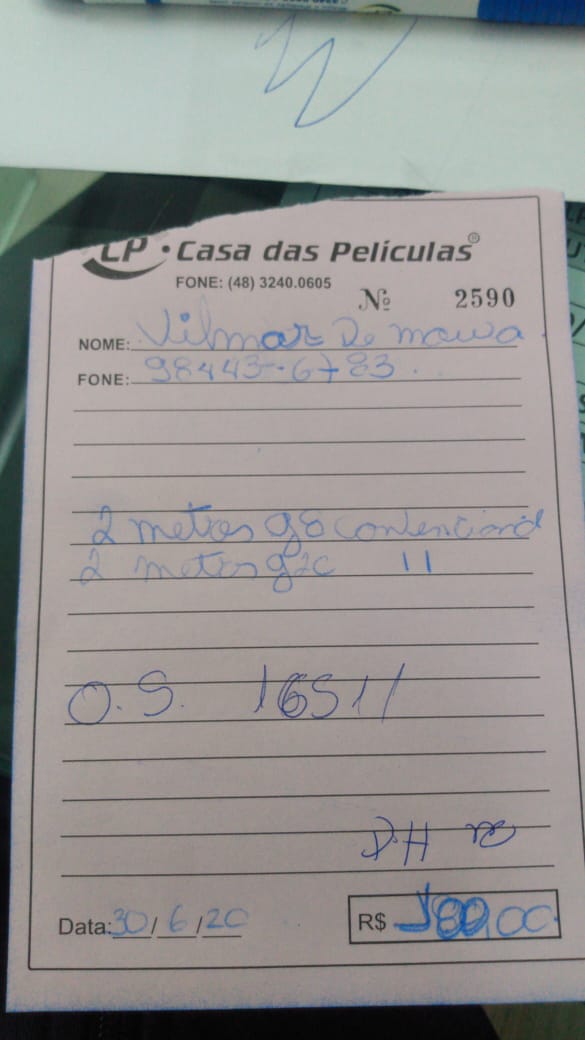 CP • Casa das Películas®
FONE: (48) 3240.0605
Nº 2590
NOME: Vilmar De
FONE: 98443-6783
2 metros g8 contencional
2 metros g2c 11
O.S. 16511
DH
Data: 30/6/20
R$